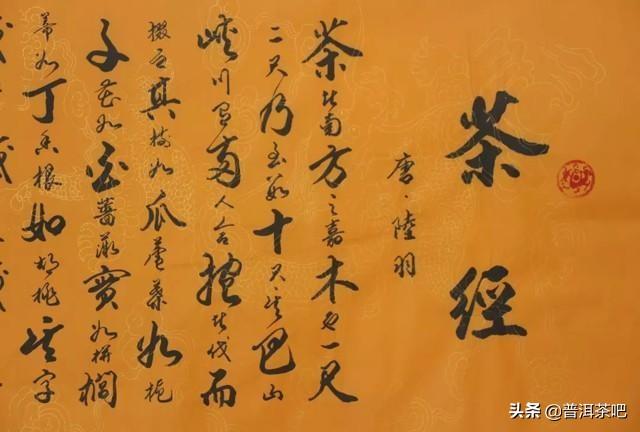 茶經
唐·陸羽
茶者南方之嘉木也一尺
二尺乃至數十尺其巴山
峽川有兩人合抱者伐而
掇之其樹如瓜蘆葉如梔
子花如白薔薇實如栟櫚
蒂如丁香根如胡桃其字
头条 @普洱茶吧